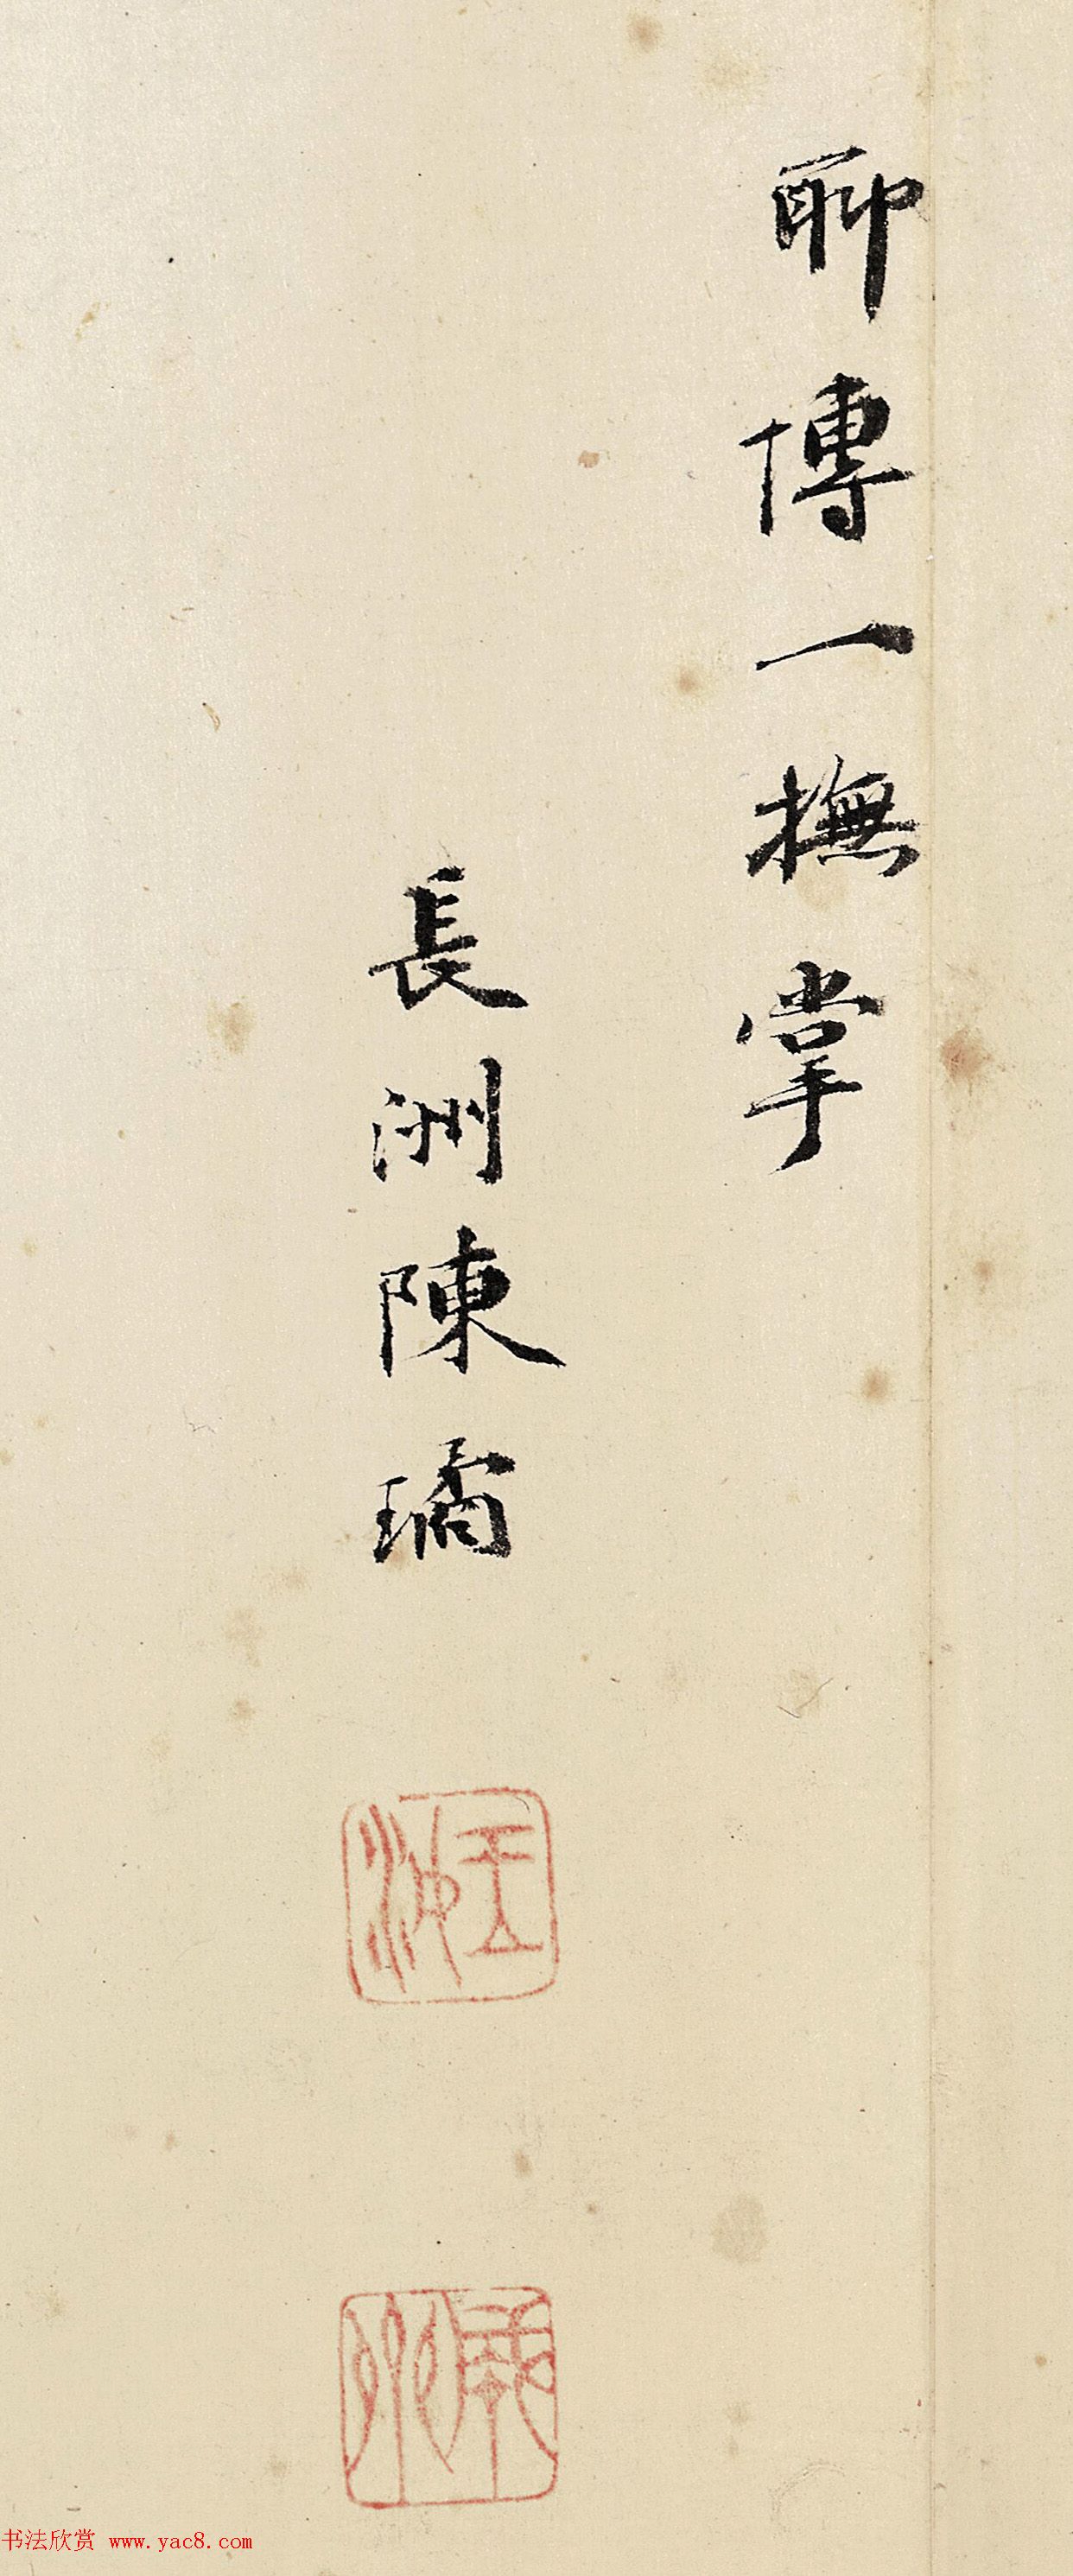 聊博一撫掌
長洲陳璚
书法欣赏 www.yac8.com